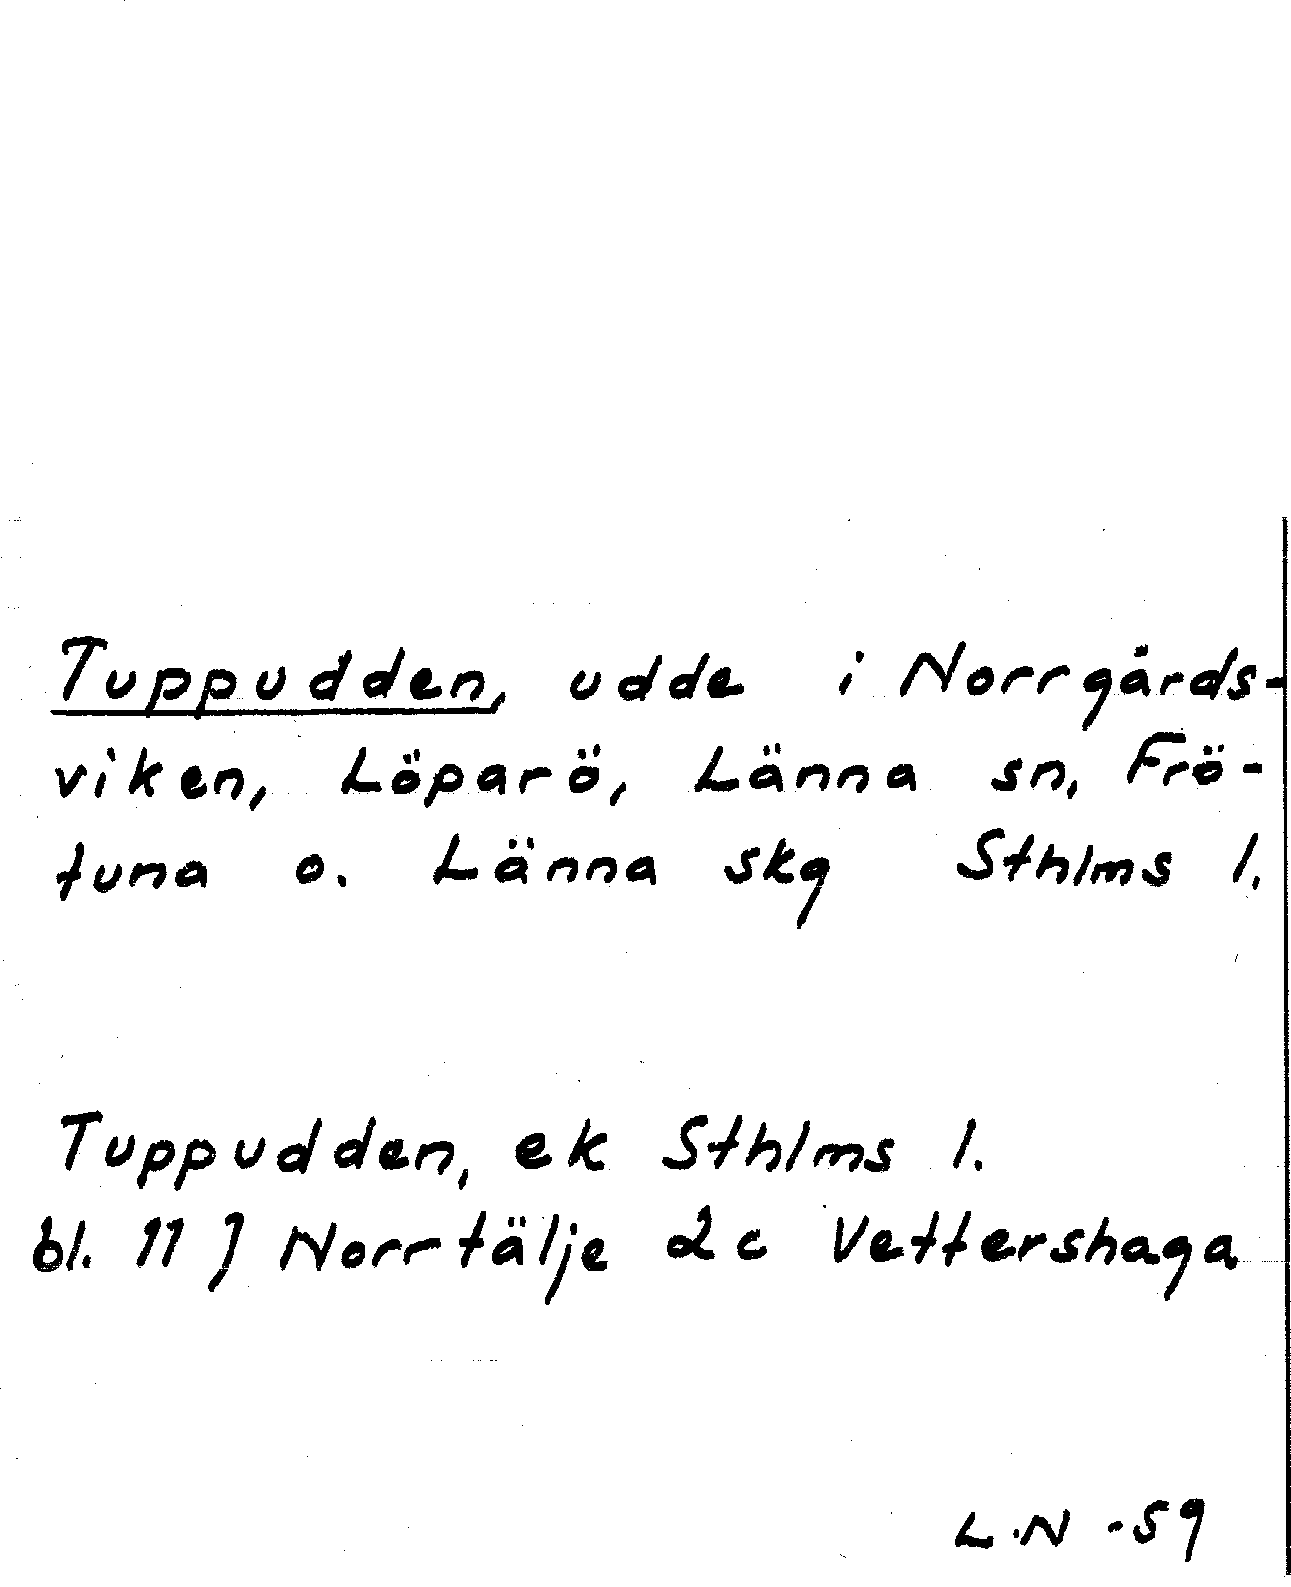 Tuppudden, udde i Norrgårds-
viken, Löparö, Länna sn, Frö-
tuna o. Länna skg Sthlms l.
Tuppudden, ek Sthlms l.
bl. 11 J Norrtälje 2c Vettershaga
L.N -59